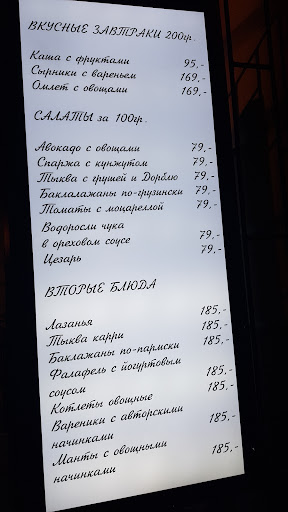 ВКУСНЫЕ ЗАВТРАКИ 200гр.
Каша с фруктами 95,-
Сырники с вареньем 169,-
Омлет с овощами 169,-
САЛАТЫ за 100гр.
Авокадо с овощами 79,-
Спаржа с кунжутом 79,-
Тыква с грушей и Дорблю 79,-
Баклалажаны по-грузински 79,-
Томаты с моцареллой 79,-
Водоросли чука
в ореховом соусе 79,-
Цезарь 79,-
ВТОРЫЕ БЛЮДА
Лазанья 185,-
Тыква карри 185,-
Баклажаны по-пармски 185,-
Фалафель с йогуртовым 185,-
соусом
Котлеты овощные 185,-
Вареники с авторскими 185,-
начинками 185,-
Манты с овощными 185,-
начинками